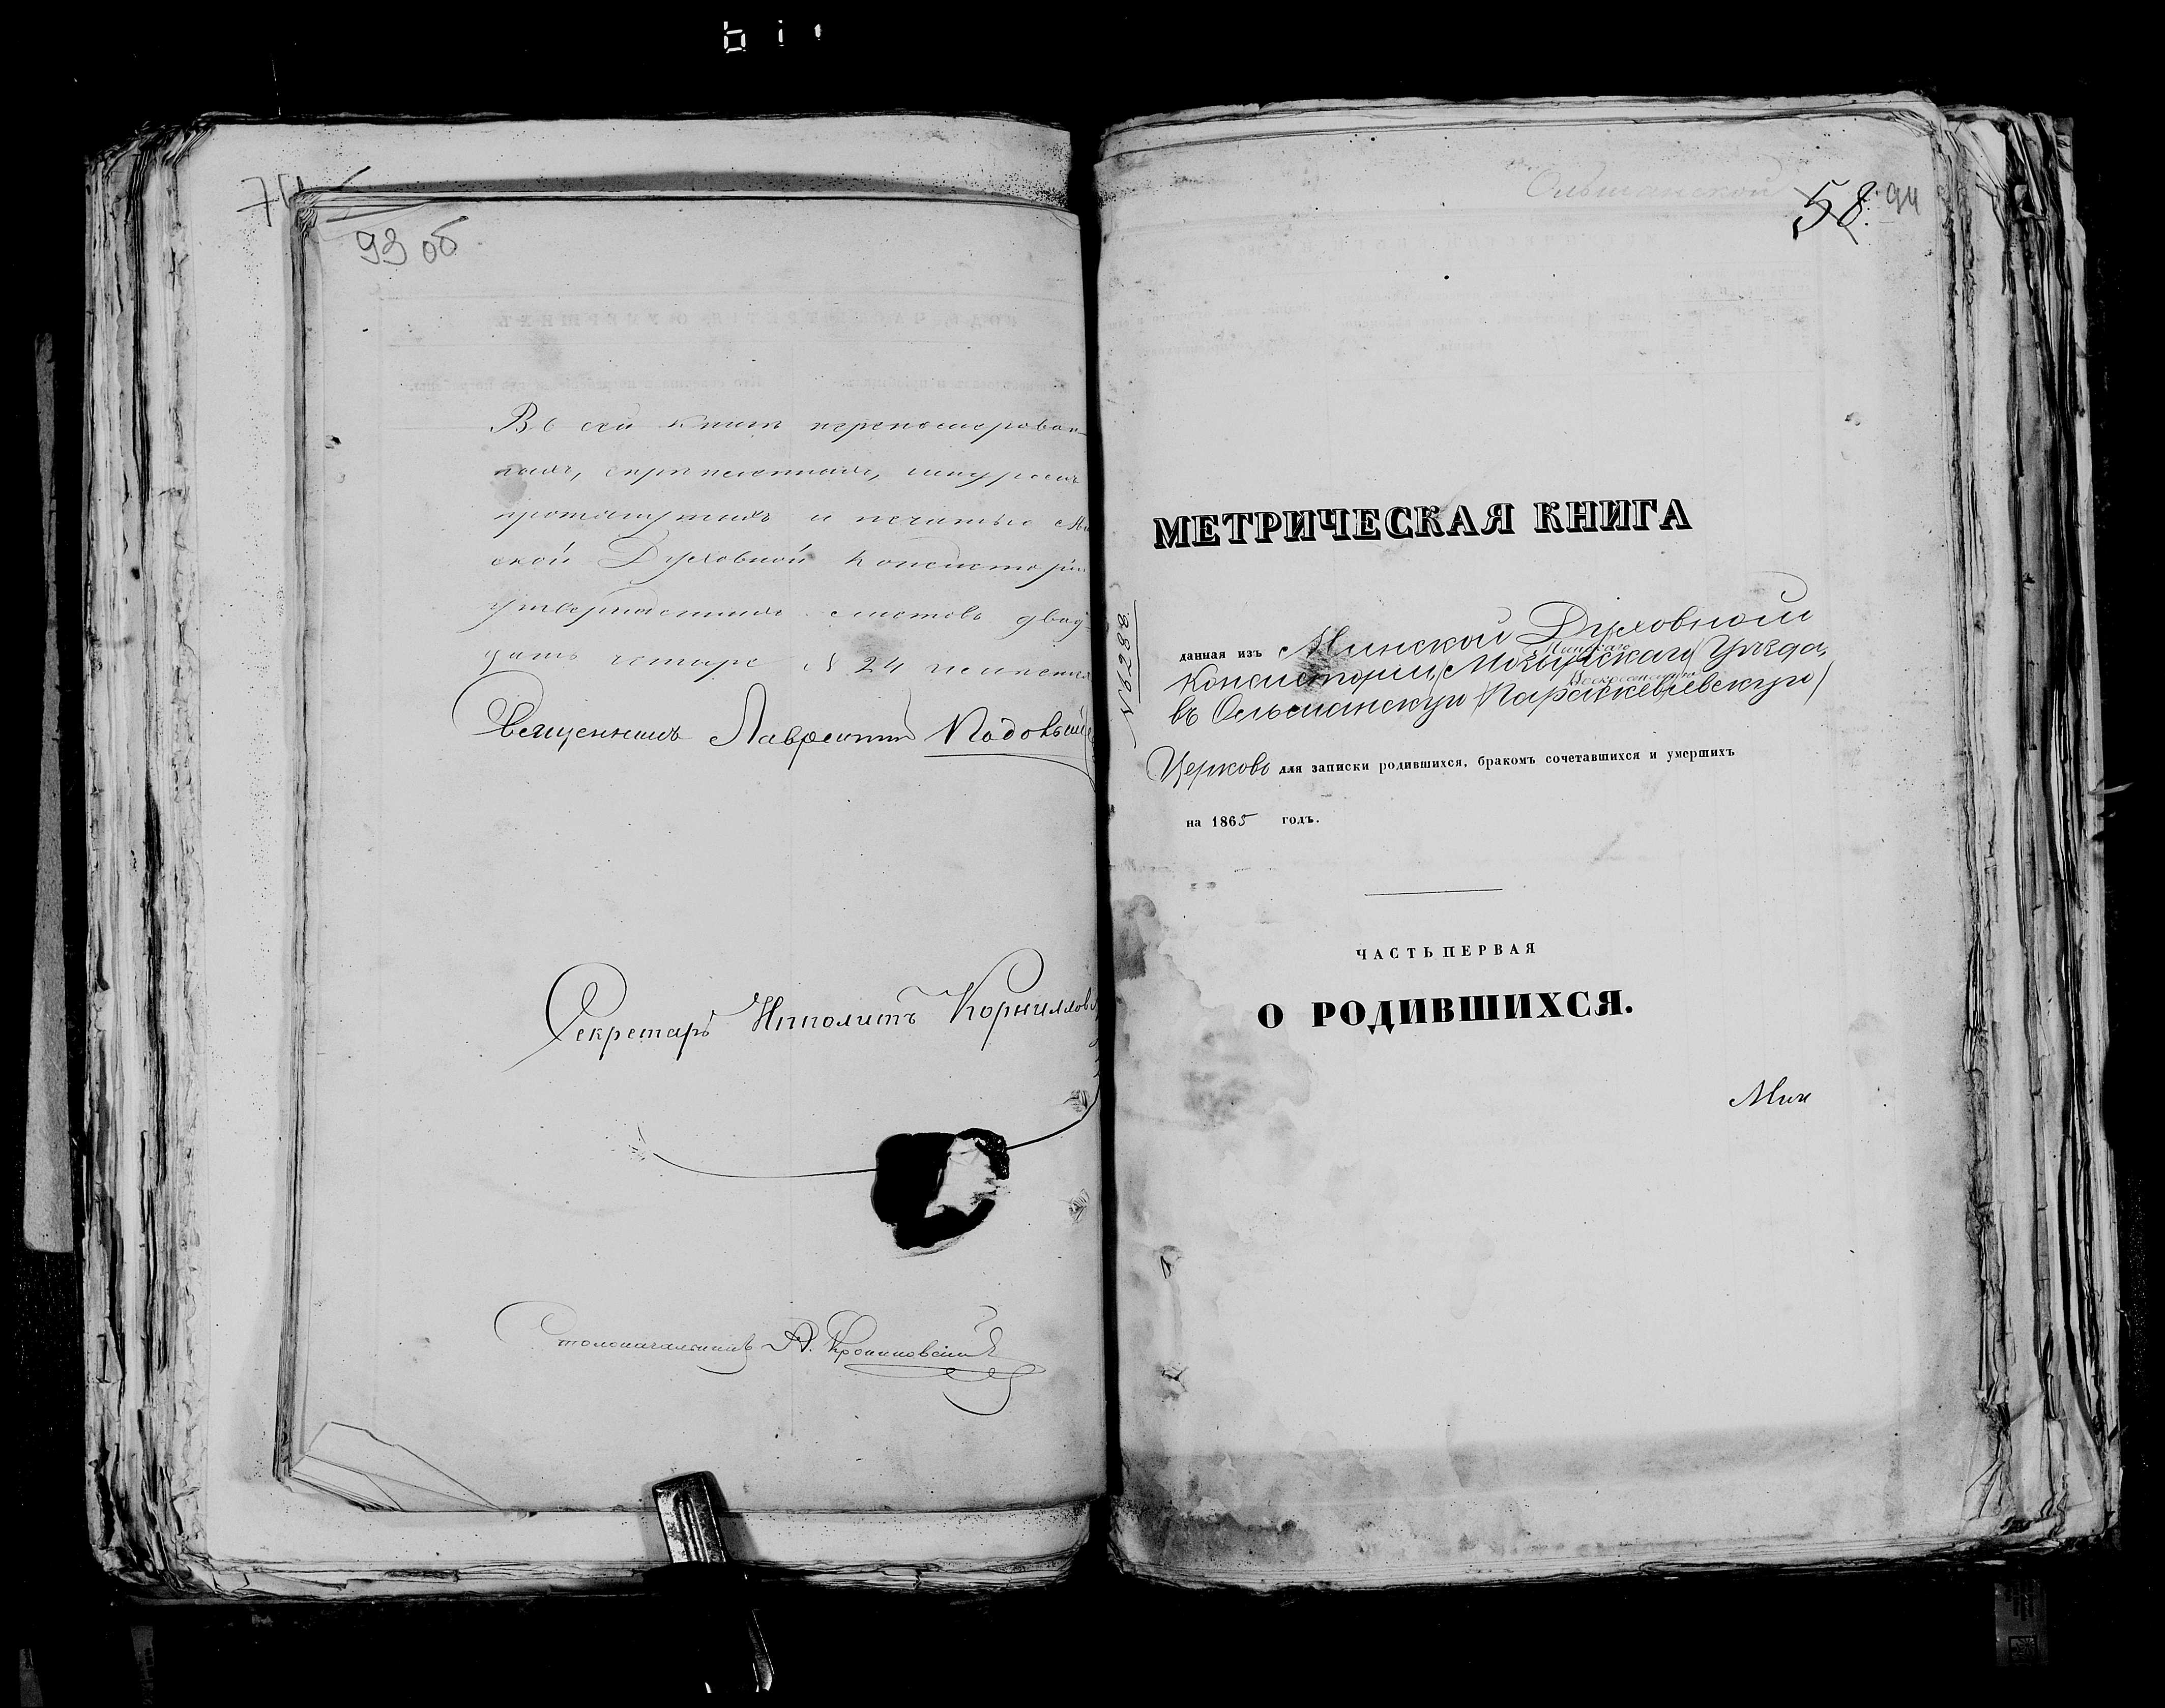 93 об
Въ сей книгѣ перенумерован-
ныхъ, скрѣпленныхъ, шнуромъ
протянутыхъ и печатью Ми
ской Духовной Консисторіи
утвержденныхъ листовъ двад-
цать четыре № 24
Священникъ Лаврентій
Секретарь Ипполитъ Корнилов
Столоначальникъ А.
Ольшанской
58. 94
МЕТРИЧЕСКАЯ КНИГА
№ 6288
данная изъ Минской Духовной
Консисторіи, Мозырскаго Уѣзда,
въ Ольшанскую Параскевіевскую
Церковь для записки родившихся, бракомъ сочетавшихся и умершихъ
на 1865 годъ.
ЧАСТЬ ПЕРВАЯ
О РОДИВШИХСЯ.
Мин